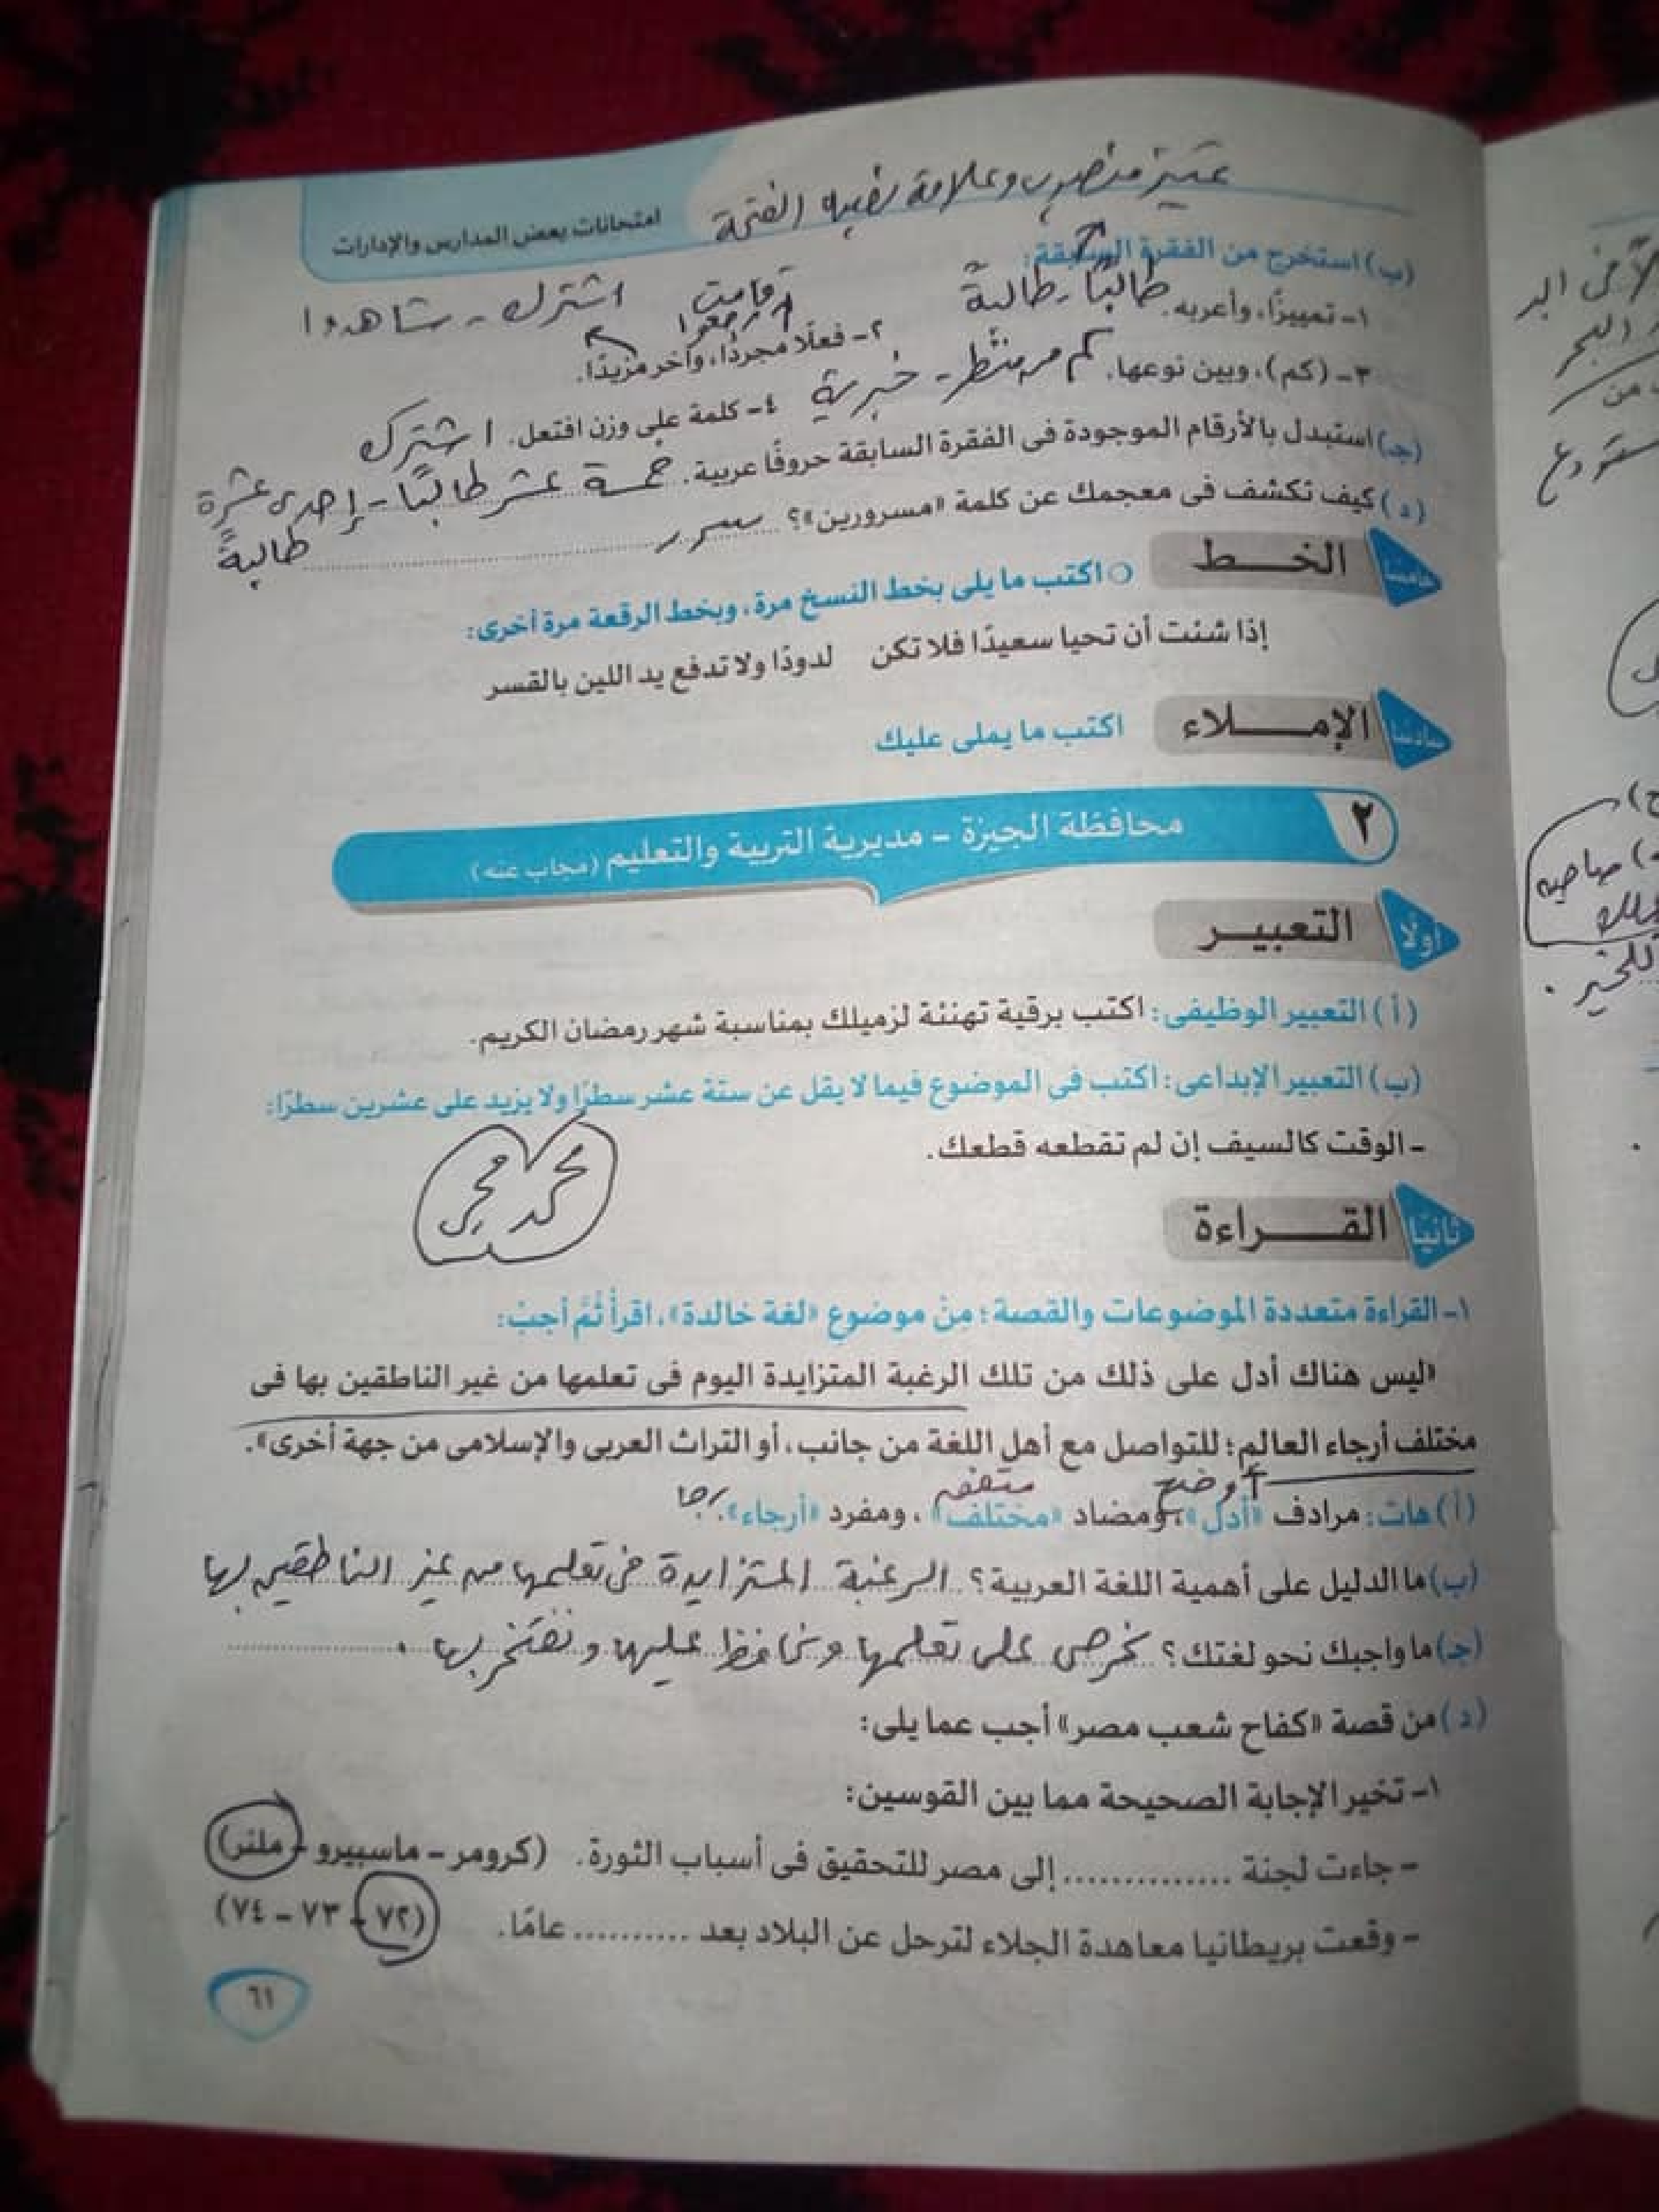 تمييز منصوب وعلامة نصبه الفتحة
امتحانات بعض المدارس والإدارات
(ب) استخرج من الفقرة السابقة:
١- تمييزًا، وأعربه. طالبًا - طالبة
٢- فعلًا مجردًا، وآخر مزيدًا. قامت رجعوا اشترك - شاهدوا
٣- (كم)، وبين نوعها. كم من منظر - خبرية
٤- كلمة على وزن افتعل. اشترك
(جـ) استبدل بالأرقام الموجودة فى الفقرة السابقة حروفًا عربية. خمسة عشر طالبًا - إحدى عشرة طالبةً
(د) كيف تكشف فى معجمك عن كلمة «مسرورين»؟ سرر
خامسًا الخـــط
اكتب ما يلى بخط النسخ مرة، وبخط الرقعة مرة أخرى:
إذا شئت أن تحيا سعيدًا فلا تكن لدودًا ولا تدفع يد اللين بالقسر
سادسًا الإمـــلاء
اكتب ما يملى عليك
٢ محافظة الجيزة - مديرية التربية والتعليم (مجاب عنه)
أولًا التعبيـــر
(أ) التعبير الوظيفى: اكتب برقية تهنئة لزميلك بمناسبة شهر رمضان الكريم.
(ب) التعبير الإبداعى: اكتب فى الموضوع فيما لا يقل عن ستة عشر سطرًا ولا يزيد على عشرين سطرًا:
- الوقت كالسيف إن لم تقطعه قطعك.
ثانيًا القـــراءة
١- القراءة متعددة الموضوعات والقصة؛ مِنْ موضوع «لغة خالدة»، اقرأْ ثُمَّ أجبْ:
«ليس هناك أدل على ذلك من تلك الرغبة المتزايدة اليوم فى تعلمها من غير الناطقين بها فى
مختلف أرجاء العالم؛ للتواصل مع أهل اللغة من جانب، أو التراث العربى والإسلامى من جهة أخرى».
أوضح متفق رجا
(أ) هات: مرادف «أدل»، ومضاد «مختلف»، ومفرد «أرجاء».
(ب) ما الدليل على أهمية اللغة العربية؟ الرغبة المتزايدة فى تعلمها من غير الناطقين بها
(جـ) ما واجبك نحو لغتك؟ نحرص على تعلمها ونحافظ عليها ونفتخر بها.
(د) من قصة «كفاح شعب مصر» أجب عما يلى:
١- تخير الإجابة الصحيحة مما بين القوسين:
- جاءت لجنة .............. إلى مصر للتحقيق فى أسباب الثورة. (كرومر - ماسبيرو - ملنر)
- وقعت بريطانيا معاهدة الجلاء لترحل عن البلاد بعد .......... عامًا. (٧٢ - ٧٣ - ٧٤)
٦١